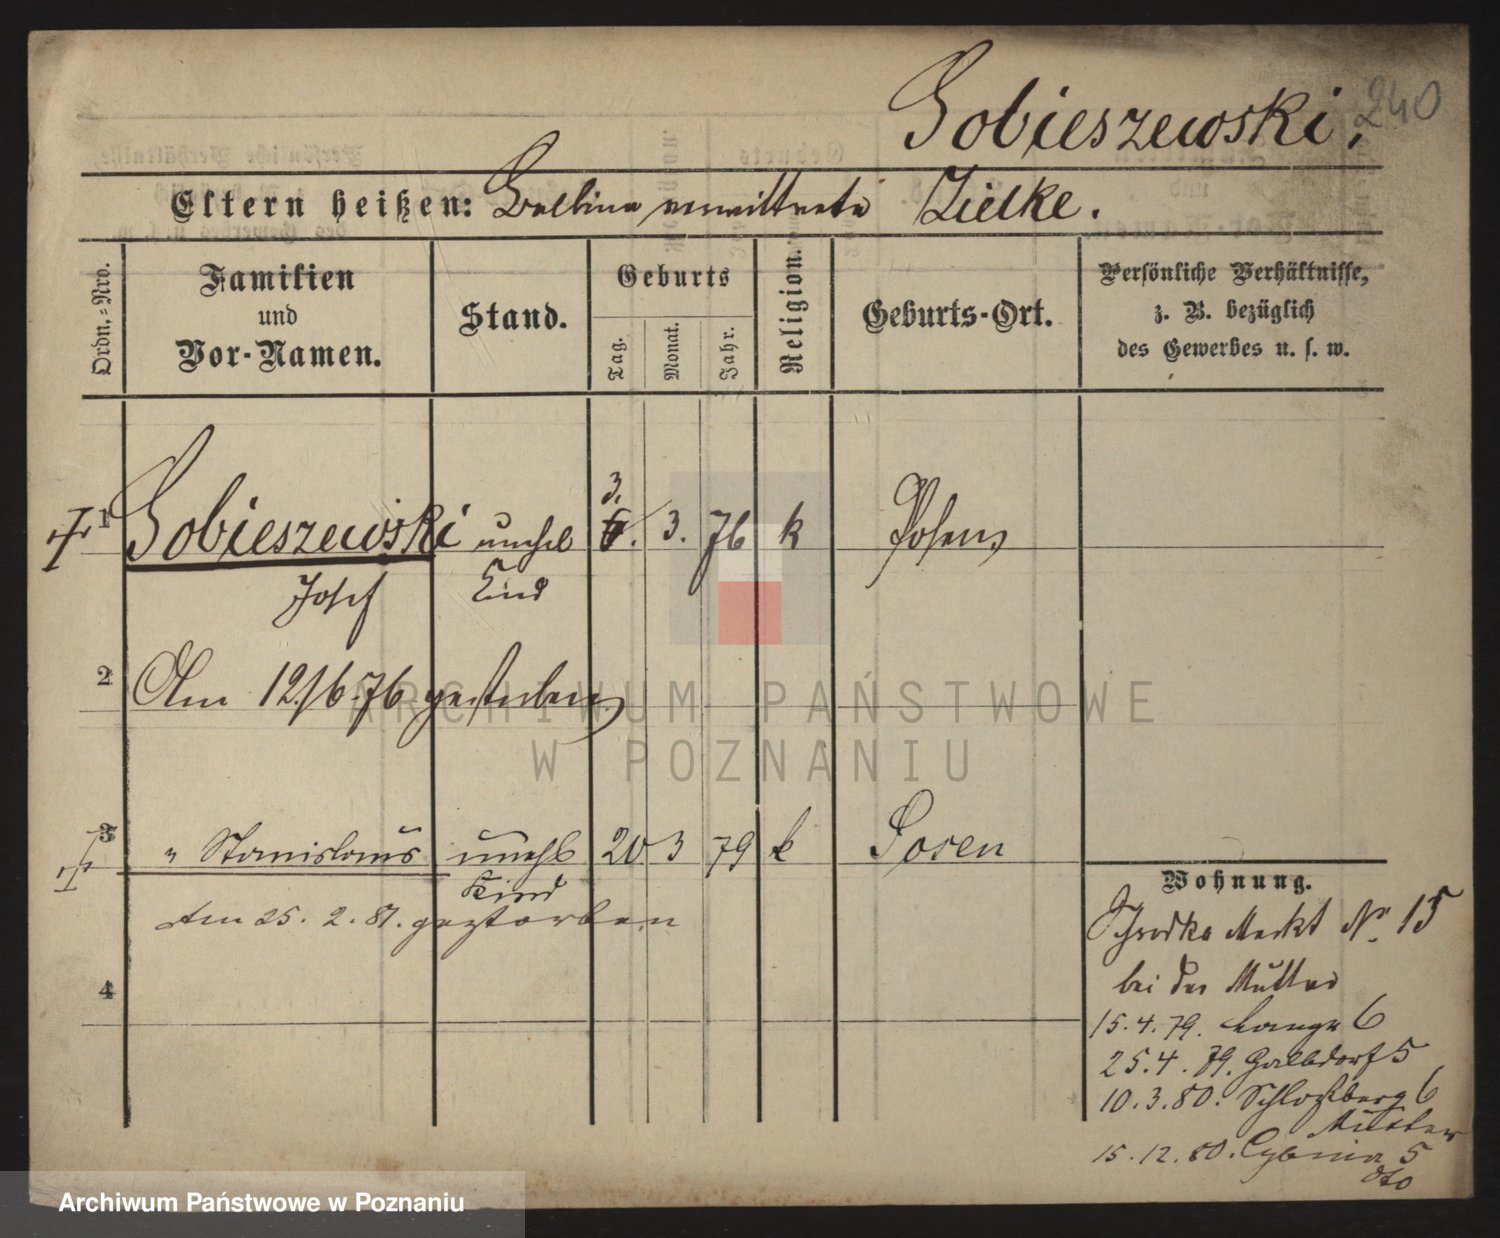 240
Sobieszewski.
Eltern heißen: Balbina verwittwete Zielke.
Ordn.-Nro.
Familien und Vor-Namen.
Stand.
Geburts
Tag.
Monat.
Jahr.
Religion.
Geburts-Ort.
Persönliche Verhältnisse, z. B. bezüglich des Gewerbes u. s. w.
3.
1 Sobieszewski unehel 6. 3. 76 k Posen
Josef Kind
2 Am 12/6 76 gestorben
3 " Stanislaus unehl 20 3 79 k Posen
Kind
Am 25. 2. 81. gestorben
4
Wohnung.
Schrodka Markt No 15
bei der Mutter
15.4.79. Lange 6
25.4.79. Halbdorf 5
10.3.80. Schloßberg 6
Mutter
15.12.80. Cybina 5
dto
ARCHIWUM PAŃSTWOWE
W POZNANIU
Archiwum Państwowe w Poznaniu